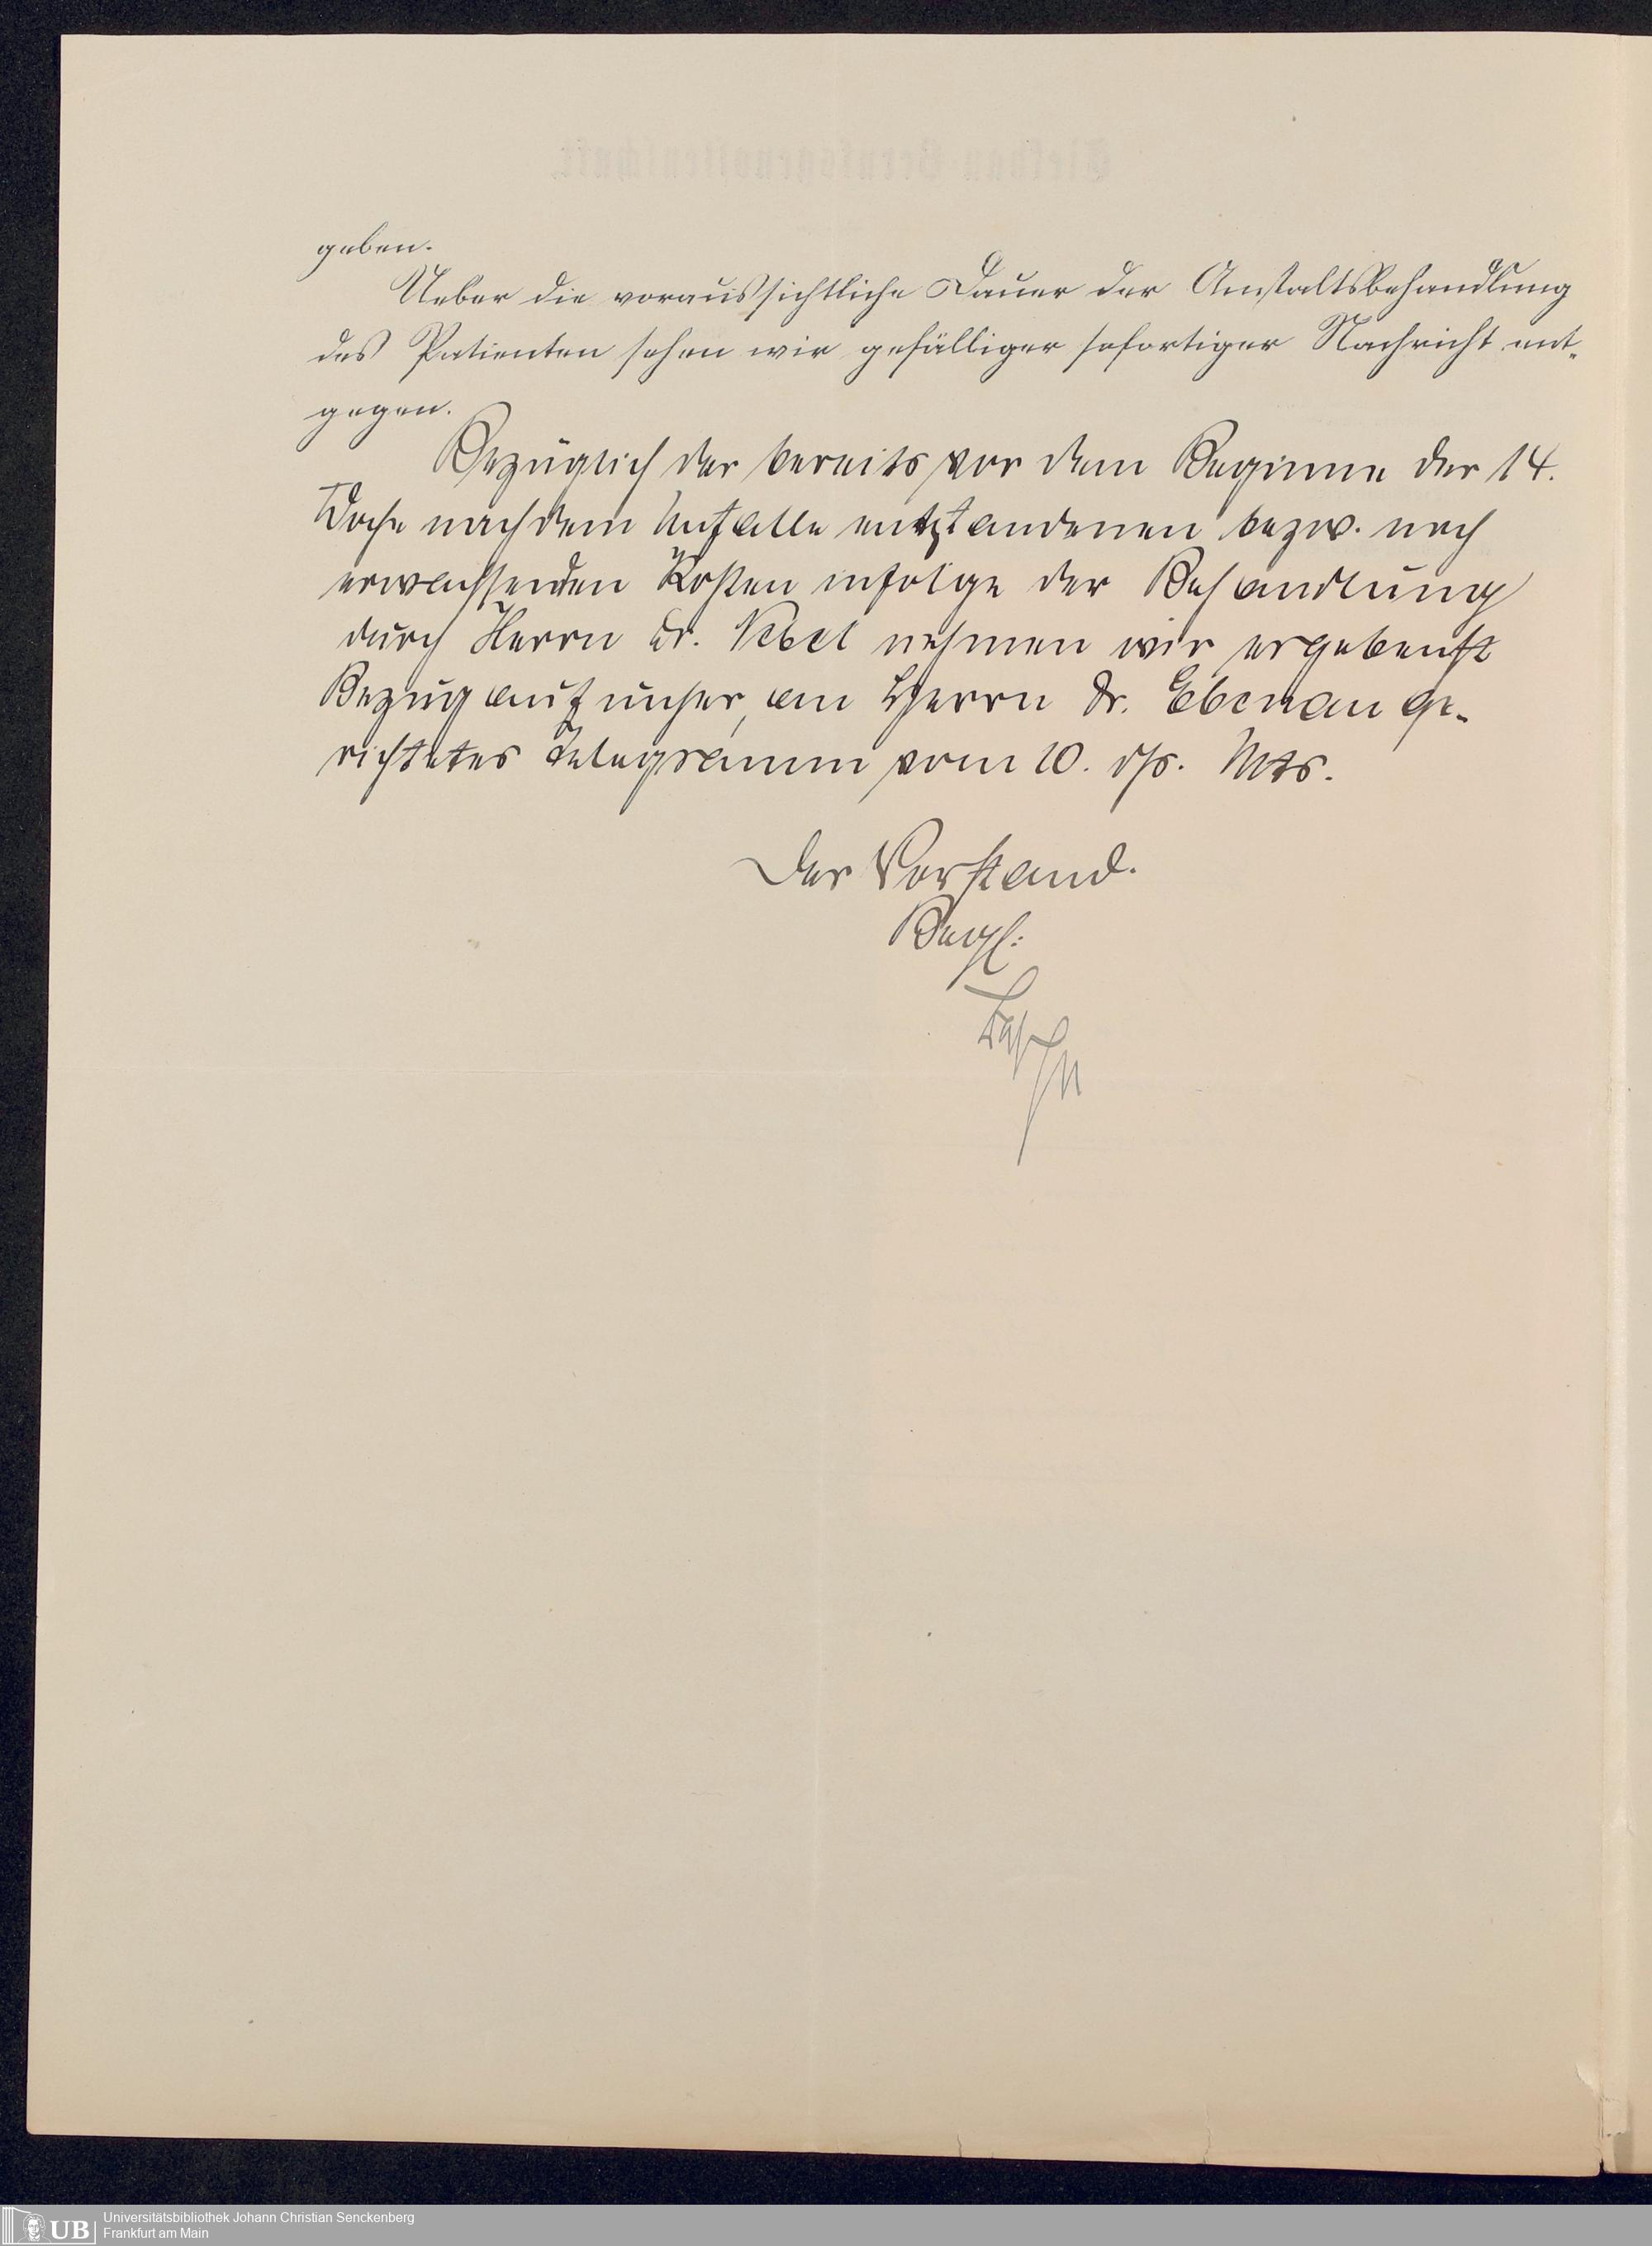 geben.
Ueber die voraussichtliche Dauer der Anstaltsbehandlung
des Patienten sehen wir gefälliger sofortiger Nachricht ent-
gegen.
Bezüglich der bereits vor dem Beginne der 14.
Woche nach dem Unfalle entstandenen bezw. noch
erwachsenden Kosten infolge der Behandlung
durch Herrn Dr. Nebel nehmen wir ergebenst
Bezug auf unser, an Herrn Dr. Ebenau ge-
richtetes Telegramm vom 10. ds. Mts.
Der Vorstand.
UB
Universitätsbibliothek Johann Christian Senckenberg
Frankfurt am Main